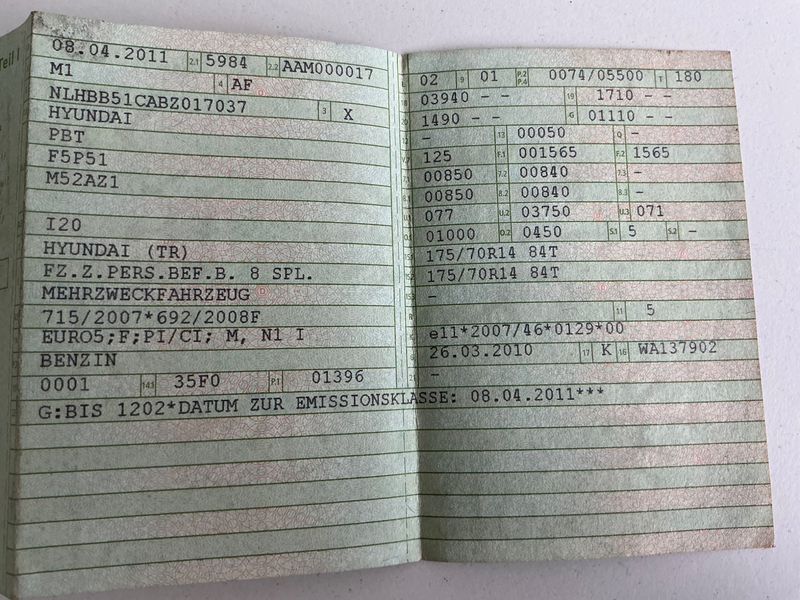 Teil I
08.04.2011 2.1 5984 2.2 AAM000017
M1 4 AF
NLHBB51CABZ017037 3 X
HYUNDAI
PBT
F5P51
M52AZ1
I20
HYUNDAI (TR)
FZ.Z.PERS.BEF.B. 8 SPL.
MEHRZWECKFAHRZEUG
715/2007*692/2008F
EURO5;F;PI/CI; M, N1 I
BENZIN
0001 14.1 35F0 P.1 01396
G:BIS 1202*DATUM ZUR EMISSIONSKLASSE: 08.04.2011***
02 9 01 P.2 P.4 0074/05500 T 180
03940 - - 19 1710 - -
1490 - - G 01110 - -
- 13 00050 Q -
125 F.1 001565 F.2 1565
00850 7.2 00840 7.3 -
00850 8.2 00840 8.3 -
077 U.2 03750 U.3 071
01000 O.2 0450 S.1 5 S.2 -
175/70R14 84T
175/70R14 84T
-
R 11 5
e11*2007/46*0129*00
26.03.2010 17 K 16 WA137902
-